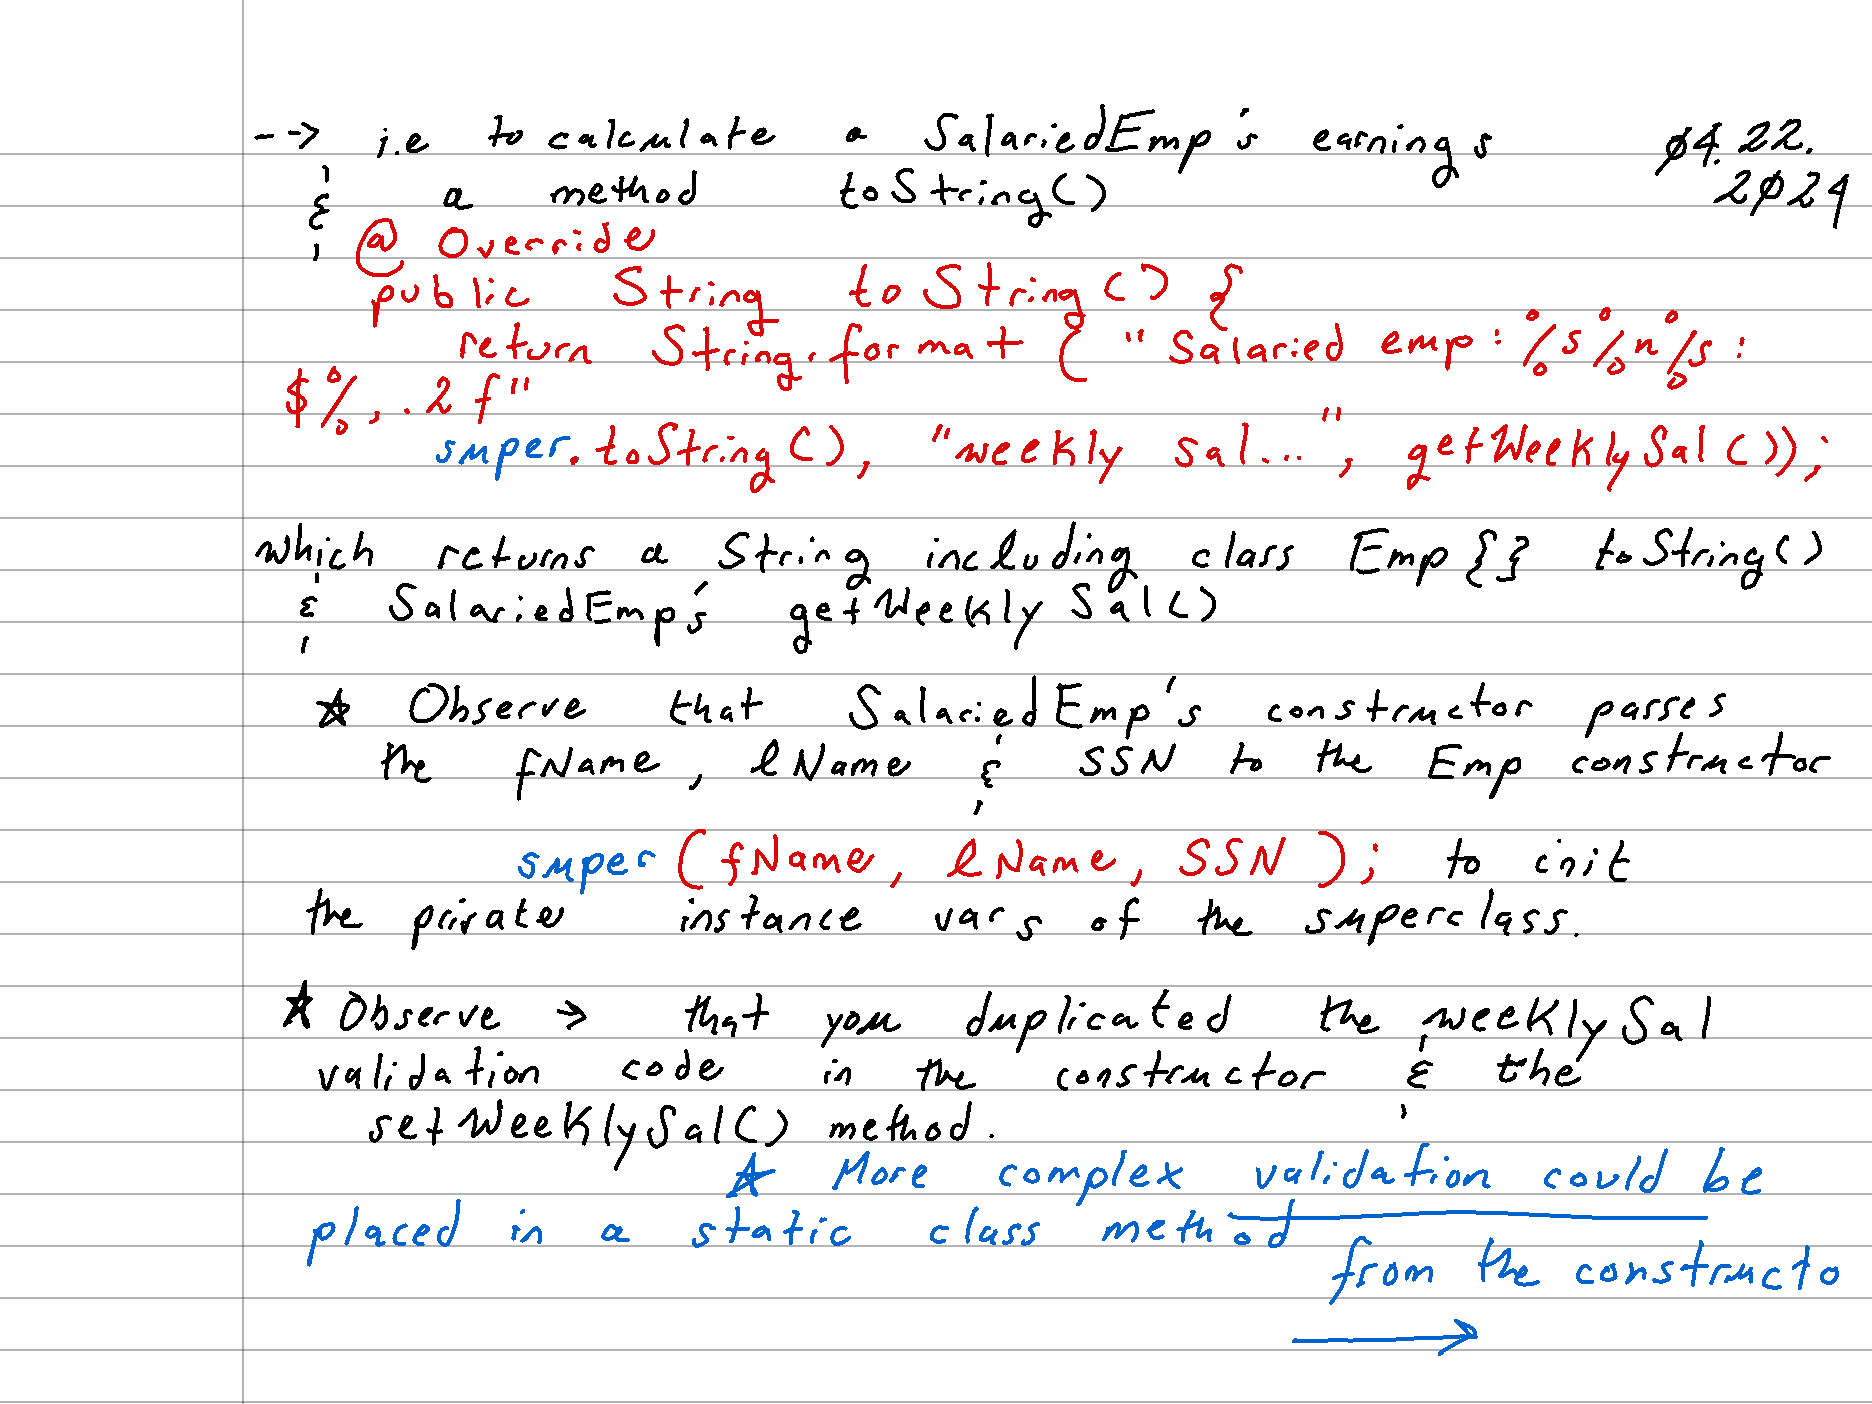 --> i.e to calculate a SalariedEmp's earnings 04.22.
& a method toString() 2024
@Override
public String toString() {
return String.format ( "Salaried emp: %s%n%s:
$%,.2f"
super.toString(), "weekly sal...", getWeeklySal());
which returns a String including class Emp{} toString()
& SalariedEmp's getWeeklySal()
☆ Observe that SalariedEmp's constructor passes
the fName, lName & SSN to the Emp constructor
super (fName, lName, SSN ); to init
the private instance vars of the superclass.
☆ Observe → that you duplicated the weeklySal
validation code in the constructor & the
setWeeklySal() method.
☆ More complex validation could be
placed in a static class method
from the constructo
→